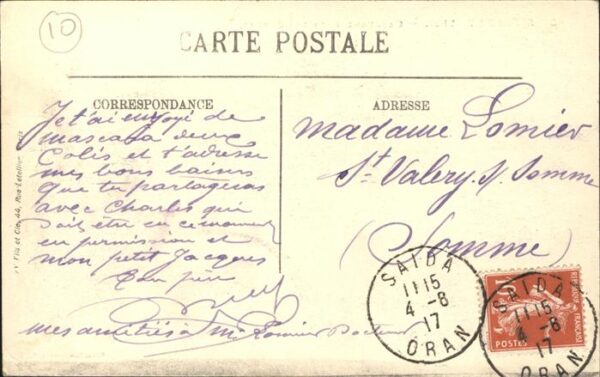 10
CARTE POSTALE
CORRESPONDANCE
ADRESSE
Je t'ai envoyé de
mascara deux
Colis et t'adresse
mes bons baisers
que tu partageras
avec Charles qui
doit être en ce moment
en permission et
mon petit Jacques
Ton père
mes amitiés à Mr Lomier Docteur
Madame Lomier
St Valery s/ Somme
(Somme)
SAIDA
11 15
4 -8
17
ORAN
10
POSTES
SAIDA
11 15
4 -8
17
ORAN